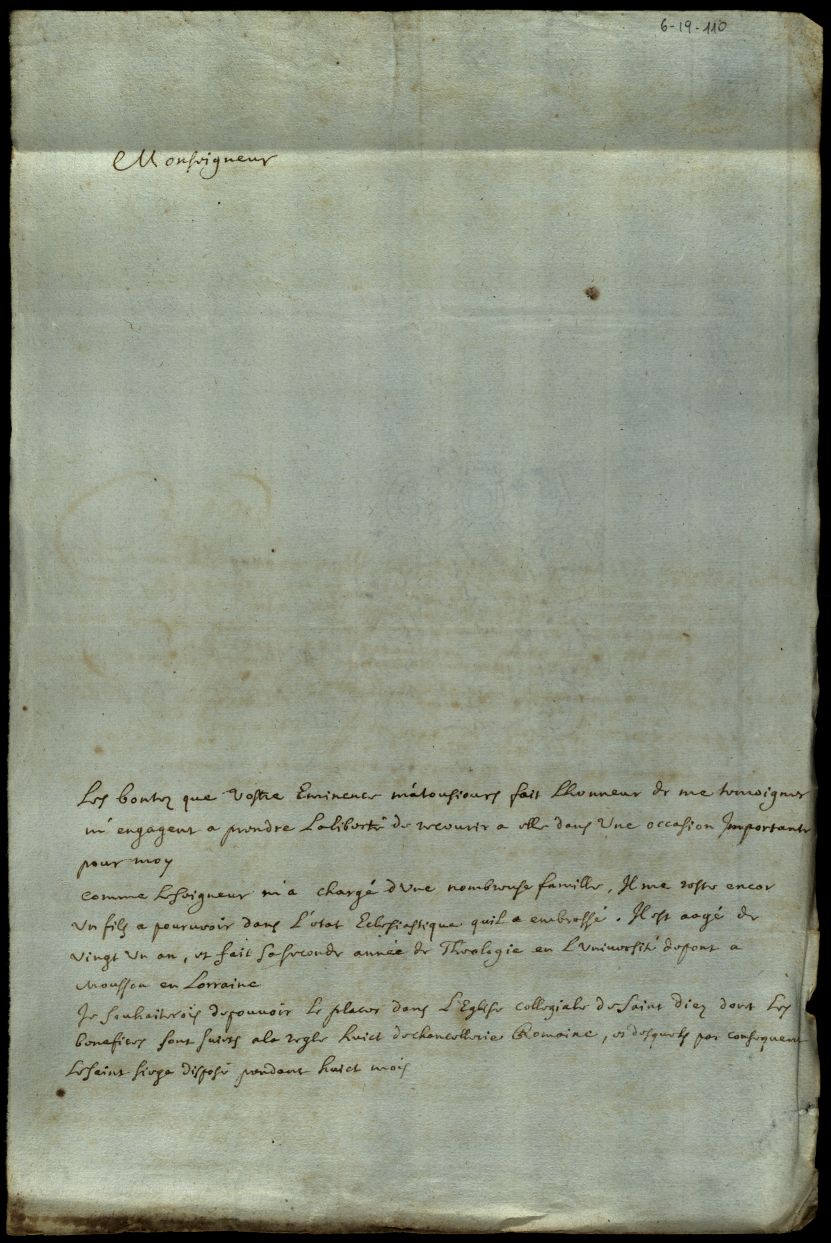 6-19-110
Monseigneur
Les bontez que Vostre Eminence m'atousiours fait Lhonneur de me temoigner
m'engagent a prendre Laliberté de recourir a elle dans Une occasion Importante
pour moy
comme Leseigneur m'a chargé d'Une nombreuse famille, Il me reste encor
Un fils a pourvoir dans L'etat Eclesiastique quil a embrassé. Il est aagé de
vingt Un an, et fait saseconde année de Theologie en L'Université depont a
Mousson en Lorraine
Je souhaiterois depouvoir Le placer dans L'Eglise collegiale de Saint Diez dont Les
benefices sont suiets ala regle huict dechancellerie Romaine, et desquels par consequent
Lesaint siege dispose pendant huict mois